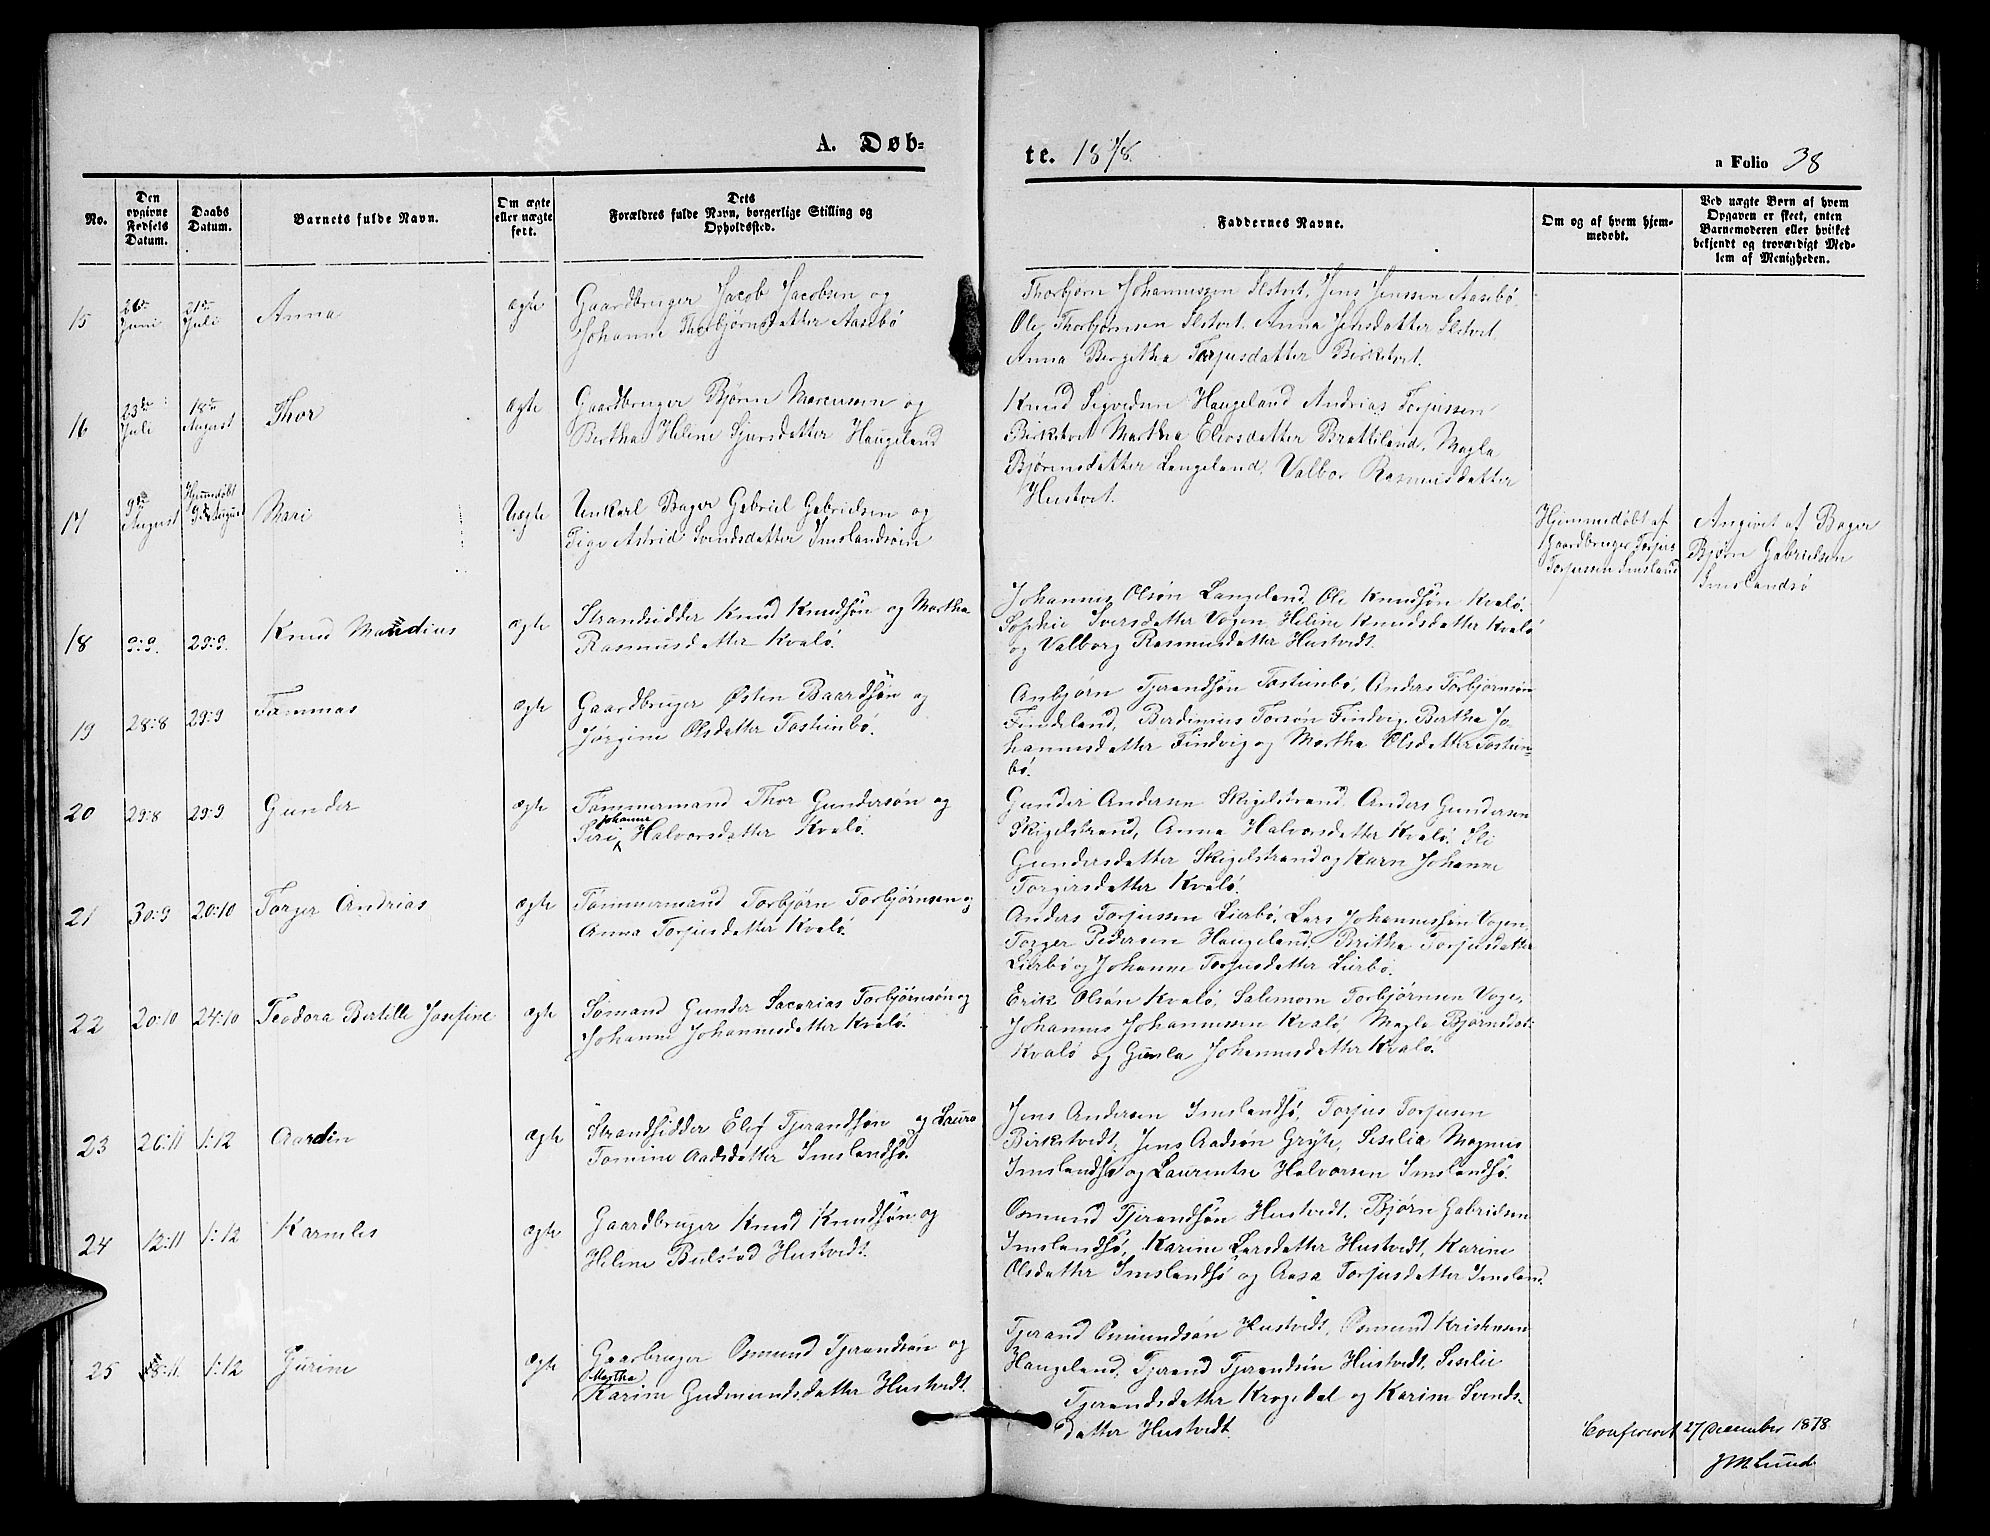 A. Døb-
te. 1878.
a Folio 38
No.
Den
opgivne
Fødsels
Datum.
Daabs
Datum.
Barnets fulde Navn.
Om ægte
eller uægte
født.
Dets
Forældres fulde Navn, borgerlige Stilling og
Opholdssted.
Faddernes Navne.
Om og af hvem hjem-
medøbt.
Ved uægte Børn af hvem
Opgaven er skeet, enten
Barnemoderen eller hvilket
bekjendt og troværdigt Med-
lem af Menigheden.
15
26de
Juni
21de
Juli
Anna
ægte
Gaardbruger Jacob Jacobsen og
Johanne Thorbjørnsdatter Aasebø
Thorbjørn Johannessen Jens Jenssen Aasebø
Ole Thorbjørnsen Anna Jensdatter
Anna Bergitha Torjusdatter Birketvet.
16
23de
Juli
18de
August
Thor
ægte
Gaardbruger Bjørn og
Bertha Helene Sjursdatter Haugeland
Knud Haugeland Andrias Torjussen
Birketvet Martha Brattiland, Magla
Bjørnsdatter Langeland, Valbor Rasmusdatter
Hustvet.
17
9de
August
Hjemmdøbt
9de August
Uægte
Unkarl Bager Gabriel Gabrielsen og
Pige Astrid Svendsdatter Imslandsøin
Hjemmedøbt af
Gaardbruger Torjus
Torjussen Imsland
Angivet af Bager
Bjørn Gabrielsen
Imslandsø
18
9:9.
29:9.
Knud
ægte
Strandsidder Knud Knudsøn og Martha
Rasmusdatter Kvalø.
Johannes Olsøn Langeland, Ole Knudsøn Kvalø.
Sophie Iversdatter Vogen, Heline Knudsdatter Kvalø
og Valborg Rasmusdatter Hustvedt.
19
28:8
29:9
Tammas
ægte
Gaardbruger Østen Baardsøn og
Jørgine Olsdatter Tosteinbø.
Anbjørn Tjerandsøn Tosteinbø, Anders Torbjørnsøn
Findeland, Berdinius Torsøn Findvig, Bertha Jo-
hannesdatter Findvig og Martha Olsdatter Tostein-
bø.
20
29:8
29:9
Gunder
ægte
Tømmermand Thor Gundersøn og
Johanne
Siri Halvorsdatter Kvalø.
Gunder Andersen Skigelstrand, Anders Gundersen
Skigelstrand, Anna Halvorsdatter Kvalø.
Gundersdatter Skigelstrand og Karn Johanne
Torgersdatter Kvalø.
21
30:9
20:10
Torger Andrias
ægte
Tømmermand Torbjørn Torbjørnsen og
Anna Torjusdatter Kvalø.
Anders Torjussen Lierbø, Lars Johannessøn Vogen,
Torger Pedersen Haugeland, Britha Torjusdatter
Lierbø og Johanne Torjusdatter Lierbø.
22
20:10
24:10
Teodora Bertille Josefine
ægte
Sømand Gunder Sacarias Torbjørnsøn og
Johanne Johannesdatter Kvalø.
Erik Olsøn Kvalø, Salemom Torbjørnsen Voge,
Johannes Johannessen Kvalø, Magla Bjørnsdat-
Kvalø og Gunla Johannesdatter Kvalø.
23
26:11
1:12
Aardin
ægte
Strandsidder Elef Tjerandsøn og Laura
Tomine Aadsdatter Imslandsø.
Jens Andersen Imslandsø, Torjus Torjusen
Birkstvedt, Jens Aadsøn Gryte, Sesilia Magnus
Imslandsø og Laurentse Halvorsen Imslandsø.
24
12:11
1:12
Karneles
ægte
Gaardbruger Knud Knudsøn og
Heline Beilstad Hustvedt.
Osmund Tjerandsøn Hustvedt, Bjørn Gabrielsen
Imslandsø, Karine Larsdatter Hustvedt, Karine
Olsdatter Imslandsø og Aasa Torjusdatter Imsland.
25
8:11
1:12
Gurine
ægte
Gaarbruger Osmund Tjerandsøn og
Martha
Karine Gudmundsdatter Hustvedt.
Tjerand Osmundsøn Hustvedt, Osmund Kristensen
Haugeland, Tjerand Tjerandsøn Hustvedt, Sesilie
Tjerandsdatter Krogedal og Karine Svends-
datter Hustvedt.
Confereret 27 December 1878.
JMLund